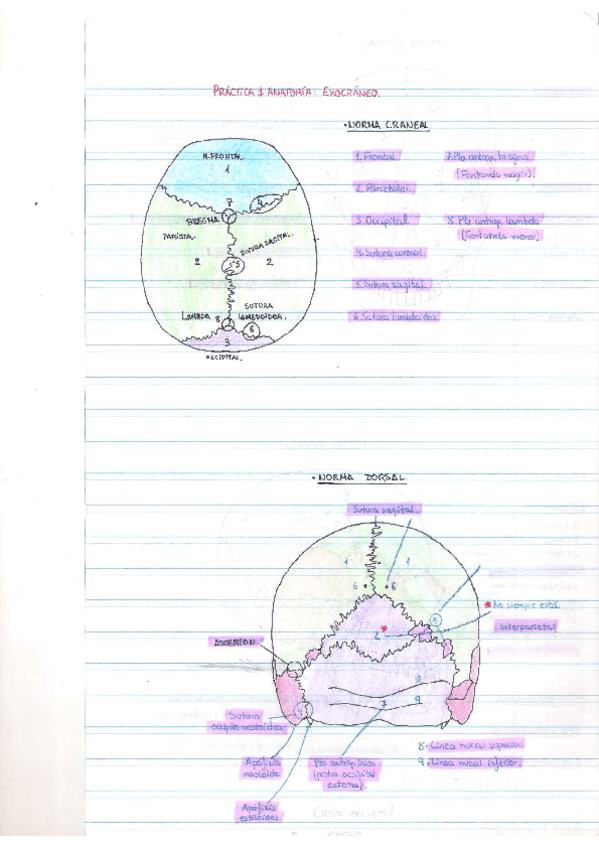 PRÁCTICA 1 ANATOMÍA: EXOCRÁNEO.
• NORMA CRANEAL
H. FRONTAL
1
7
4
BREGMA
PARIETAL
SUTURA SAGITAL.
2
5
2
LAMBDA
8
SUTURA LAMBDOIDEA.
6
3
OCCIPITAL.
1. Frontal
2. Parietales
3. Occipital
4. Sutura coronal
5. Sutura sagital.
6. Sutura lambdoidea
7. Pto antrop. bregma
(Fontanela mayor).
8. Pto antrop. lambda
(Fontanela menor).
• NORMA DORSAL
Sutura sagital.
1
1
6
6
* No siempre está
Interparietal
2
ASTERION
8
9
7
4
Sutura
occipito mastoidea
Apófisis
mastoide
Apófisis
estiloides
Pto antrop. inio
occipital
externa).
8. Línea nucal superior
9. Línea nucal inferior.